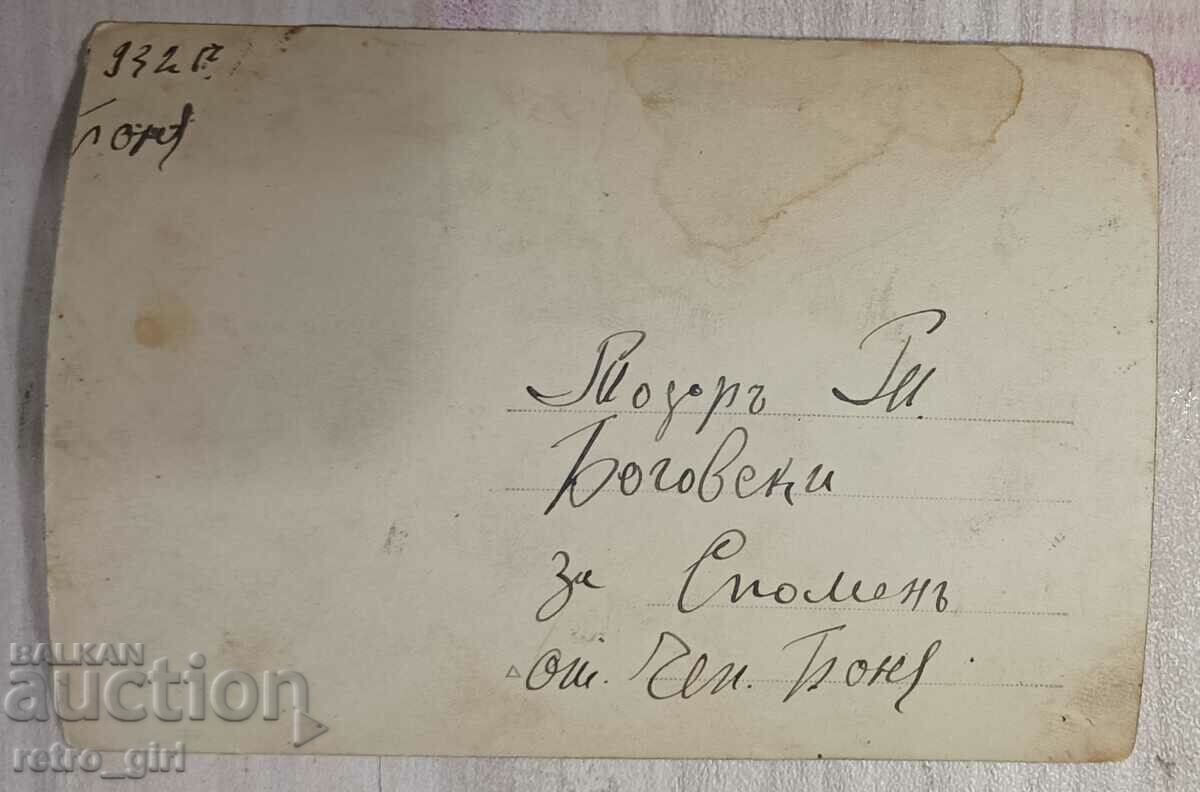 932 г.
Боня
Тодоръ Ти.
Боговски
за Споменъ
от. Чеп. Боня
BALKAN
auction
retro_girl